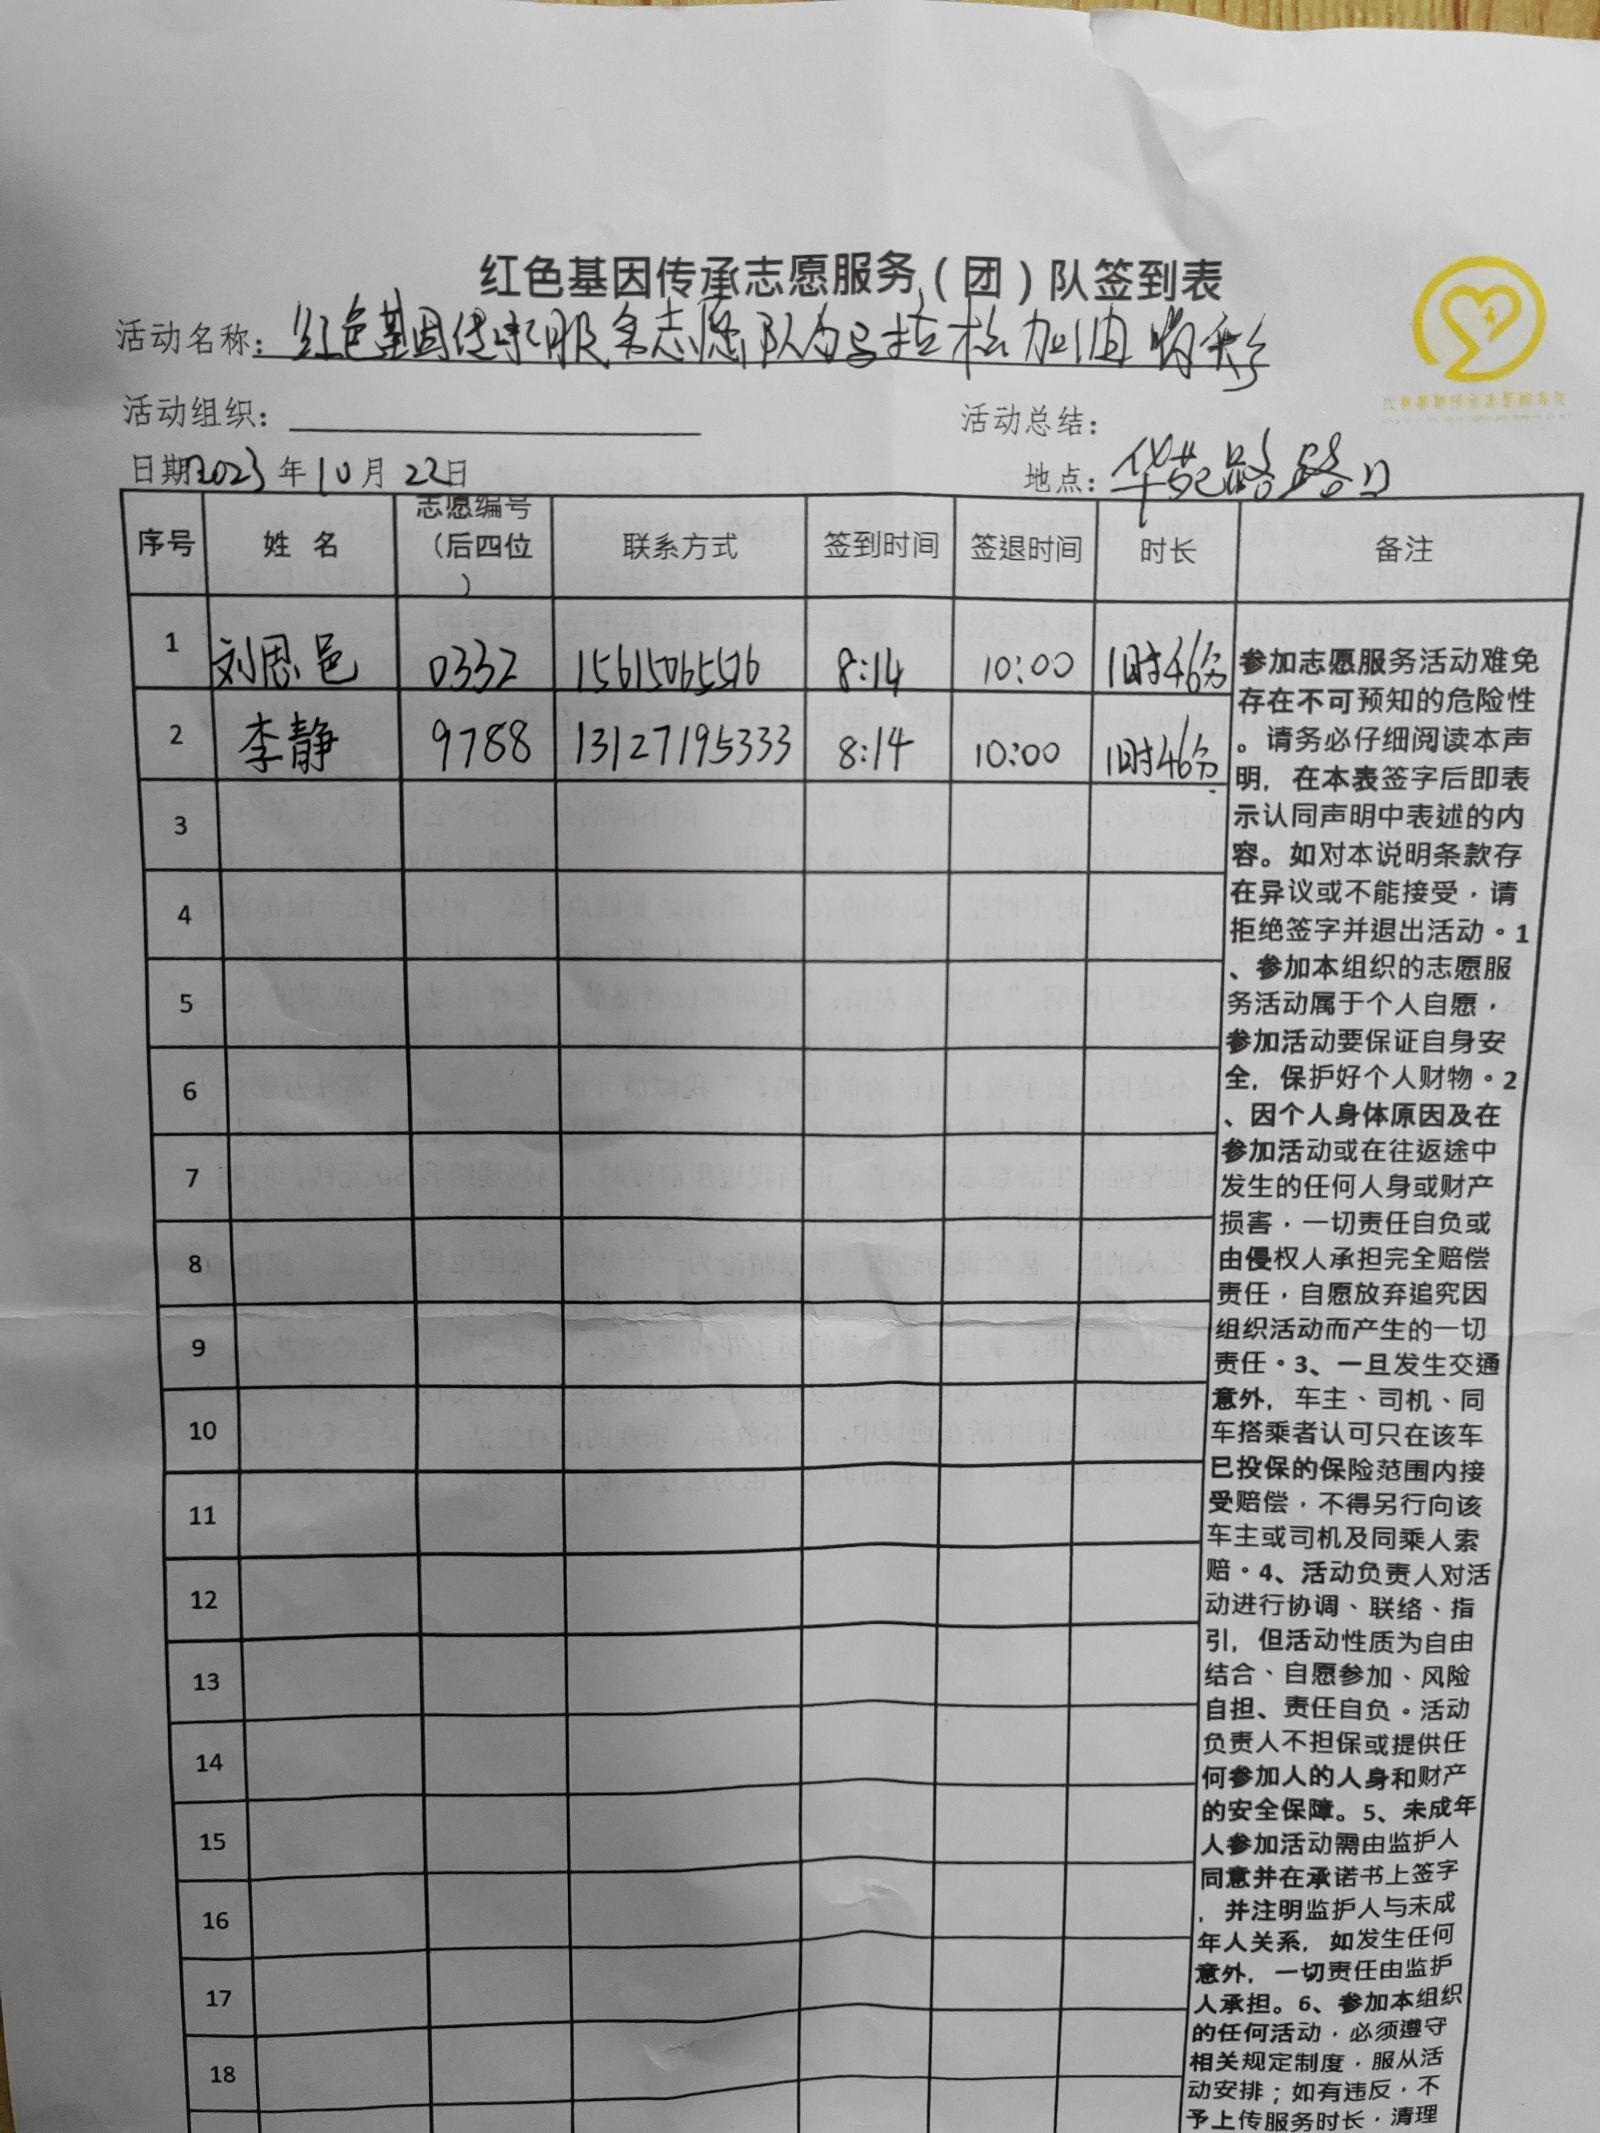 红色基因传承志愿服务（团）队签到表
活动名称：红色基因传承服务志愿队为马拉松加油喝彩
活动组织：
活动总结：
日期2023年10月22日
地点：华苑路路口
序号 姓 名 志愿编号（后四位） 联系方式 签到时间 签退时间 时长 备注
1 刘恩邑 0332 15615065516 8:14 10:00 1时46分
2 李静 9788 13127195333 8:14 10:00 1时46分
3
4
5
6
7
8
9
10
11
12
13
14
15
16
17
18
参加志愿服务活动难免
存在不可预知的危险性
。请务必仔细阅读本声
明，在本表签字后即表
示认同声明中表述的内
容。如对本说明条款存
在异议或不能接受，请
拒绝签字并退出活动。1
、参加本组织的志愿服
务活动属于个人自愿，
参加活动要保证自身安
全，保护好个人财物。2
、因个人身体原因及在
参加活动或在往返途中
发生的任何人身或财产
损害，一切责任自负或
由侵权人承担完全赔偿
责任，自愿放弃追究因
组织活动而产生的一切
责任。3、一旦发生交通
意外，车主、司机、同
车搭乘者认可只在该车
已投保的保险范围内接
受赔偿，不得另行向该
车主或司机及同乘人索
赔。4、活动负责人对活
动进行协调、联络、指
引，但活动性质为自由
结合、自愿参加、风险
自担、责任自负。活动
负责人不担保或提供任
何参加人的人身和财产
的安全保障。5、未成年
人参加活动需由监护人
同意并在承诺书上签字
，并注明监护人与未成
年人关系，如发生任何
意外，一切责任由监护
人承担。6、参加本组织
的任何活动，必须遵守
相关规定制度，服从活
动安排；如有违反，不
予上传服务时长，清理